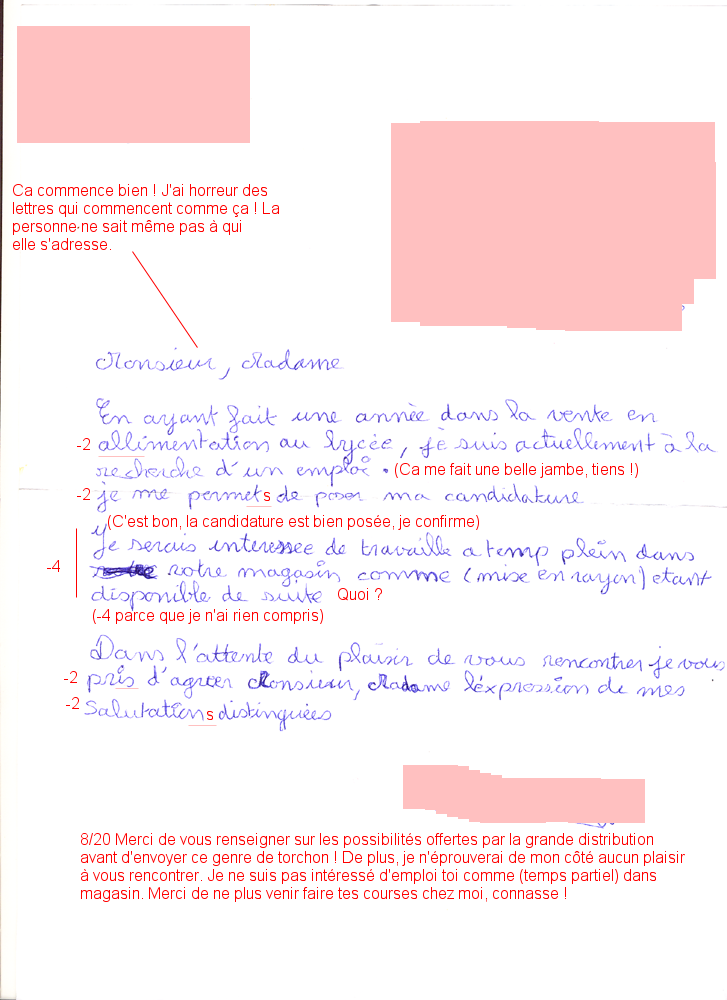 Ca commence bien ! J'ai horreur des
lettres qui commencent comme ça ! La
personne ne sait même pas à qui
elle s'adresse.
Monsieur, Madame
En ayant fait une année dans la vente en
-2 allimentation au lycée, je suis actuellement à la
recherche d'un emploi . (Ca me fait une belle jambe, tiens !)
-2 je me permets de poser ma candidature
(C'est bon, la candidature est bien posée, je confirme)
Je serais interessee de travaille a temp plein dans
-4 votre magasin comme (mise en rayon) etant
disponible de suite Quoi ?
(-4 parce que je n'ai rien compris)
Dans l'attente du plaisir de vous rencontrer je vous
-2 pris d'agreer Monsieur, Madame l'éxpression de mes
-2 Salutations distinguées
8/20 Merci de vous renseigner sur les possibilités offertes par la grande distribution
avant d'envoyer ce genre de torchon ! De plus, je n'éprouverai de mon côté aucun plaisir
à vous rencontrer. Je ne suis pas intéressé d'emploi toi comme (temps partiel) dans
magasin. Merci de ne plus venir faire tes courses chez moi, connasse !